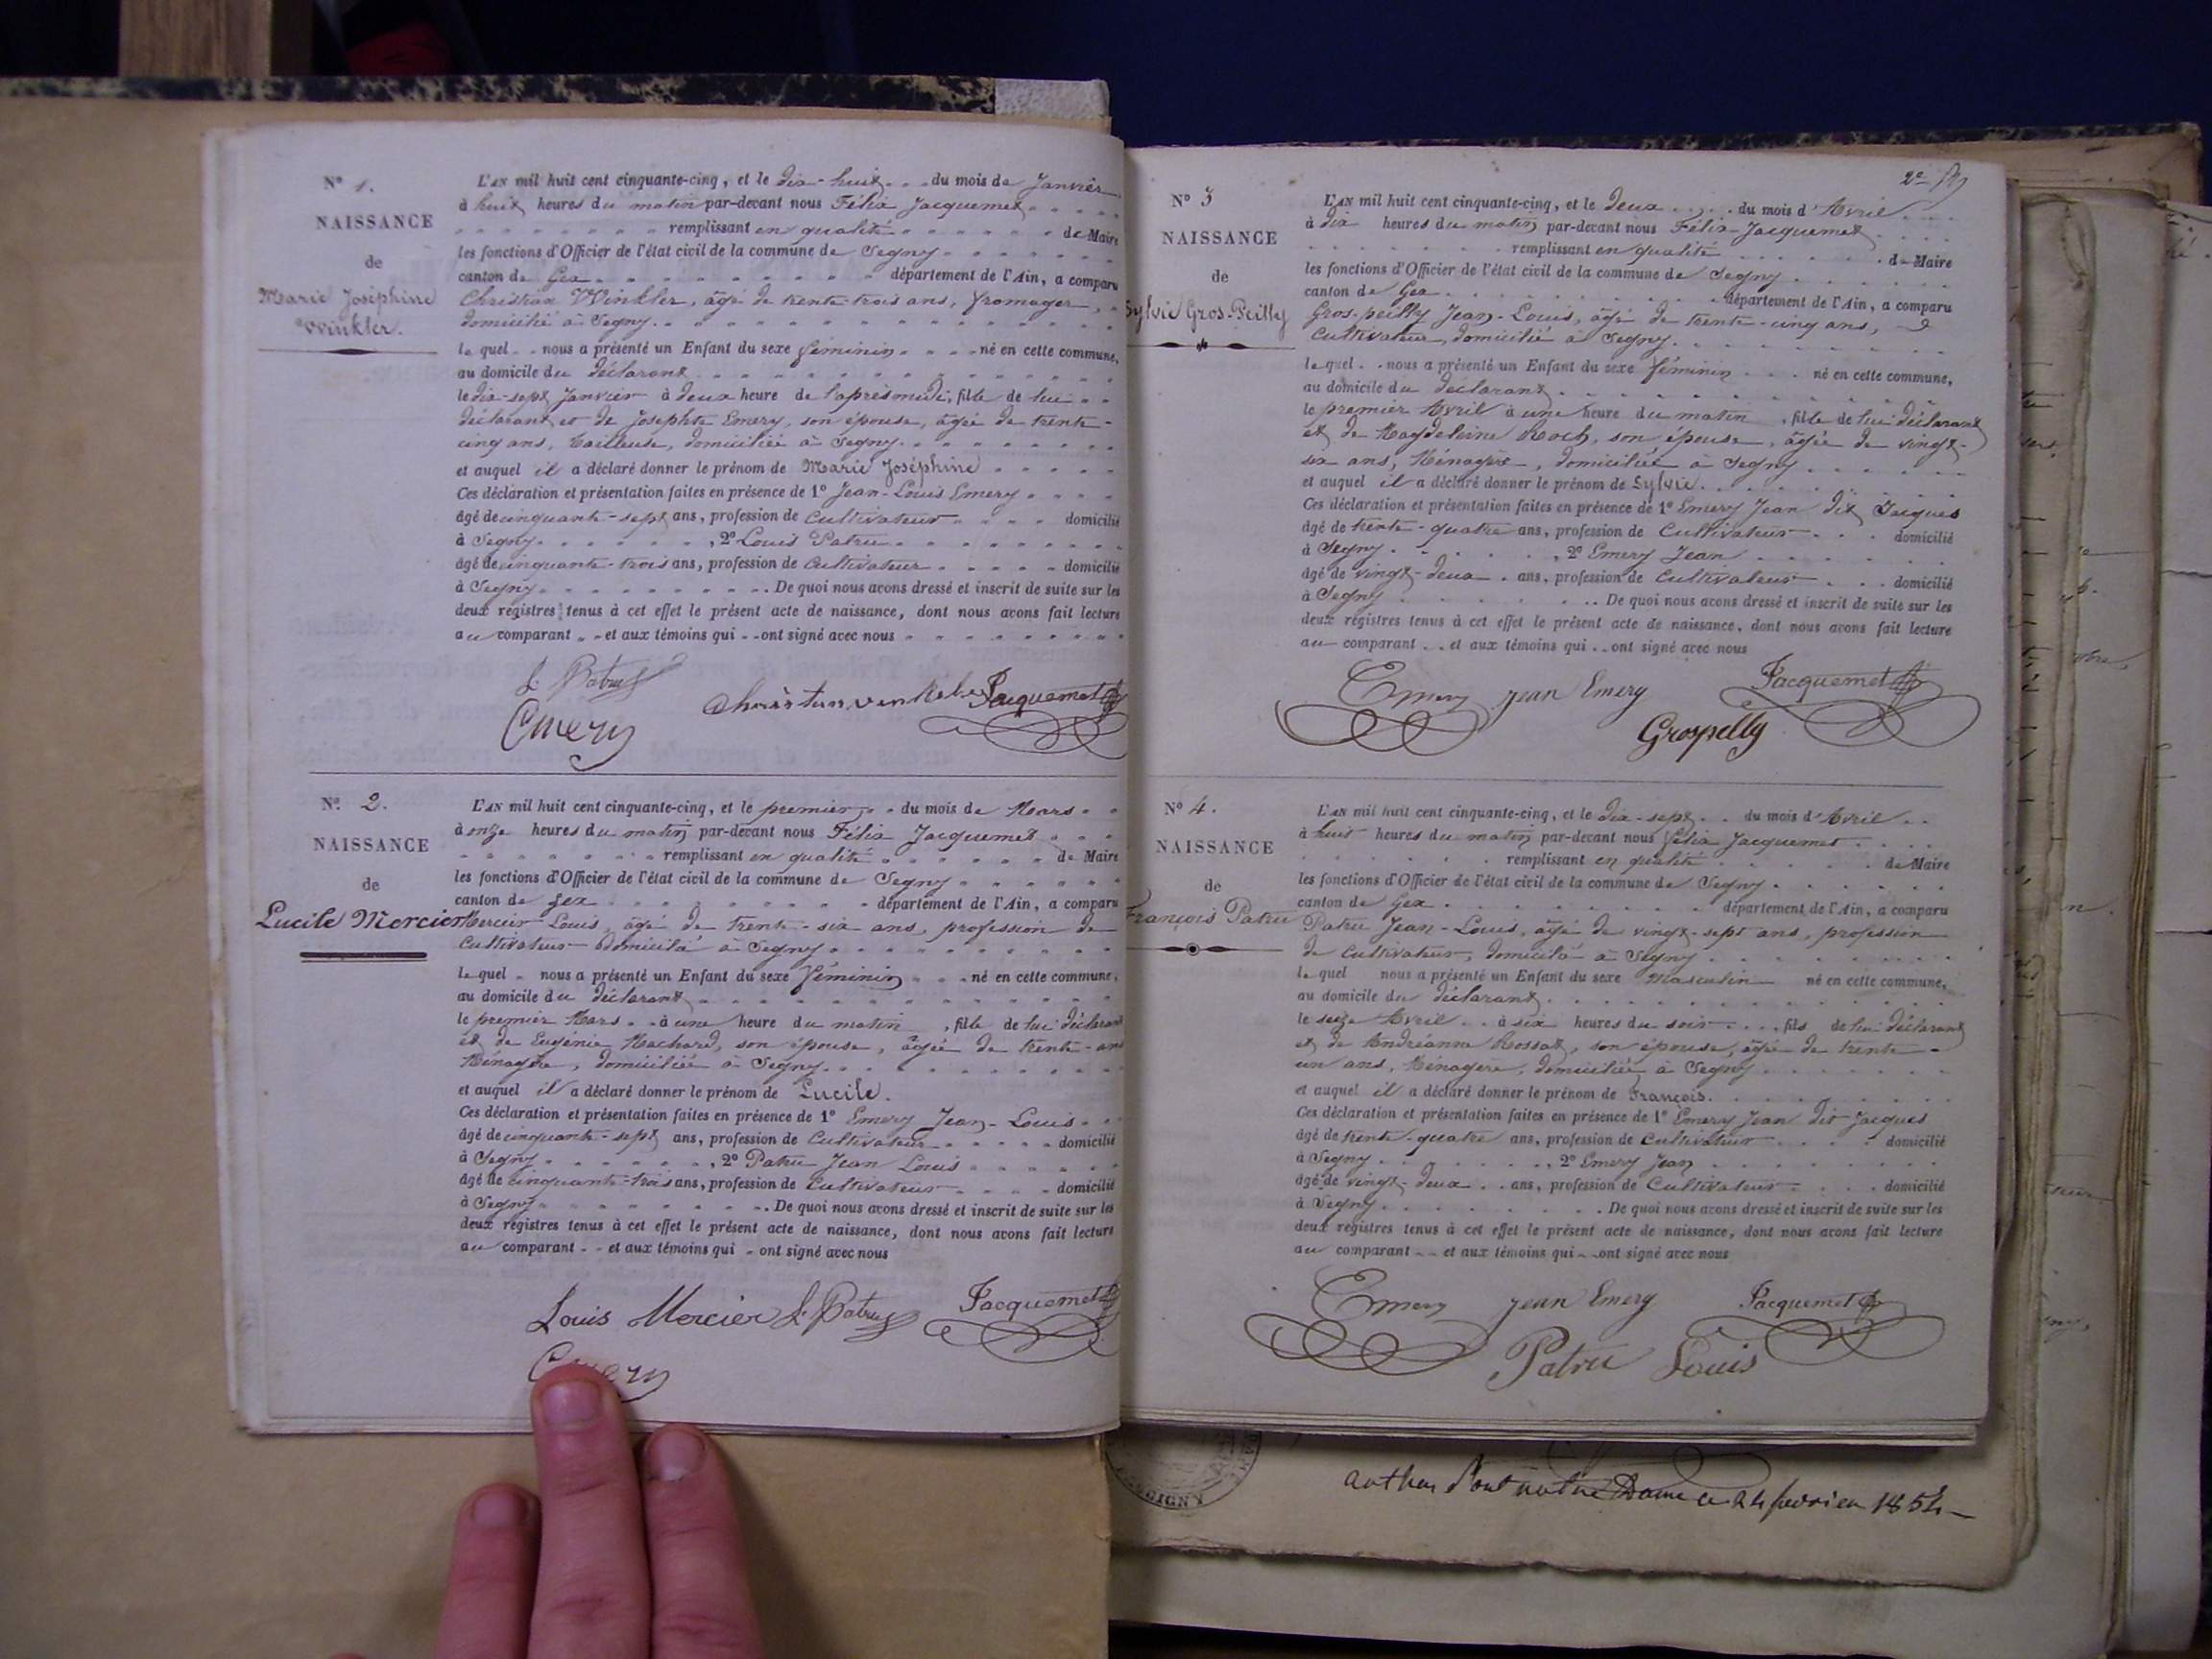 N° 1.
NAISSANCE
de
Marie Joséphine
Winkler.
L'AN mil huit cent cinquante-cinq, et le dix-huit du mois de Janvier
à huit heures du matin par-devant nous Félix Jacquemet
remplissant en qualité de Maire
les fonctions d'Officier de l'état civil de la commune de Segny
canton de Gex département de l'Ain, a comparu
Christian Winkler, âgé de trente-trois ans, fromager,
domicilié à Segny.
lequel nous a présenté un Enfant du sexe féminin né en cette commune,
au domicile du déclarant
le dix-sept Janvier à deux heure de l'après midi, fille de lui
déclarant et de Josephte Emery, son épouse, âgée de trente-
cinq ans, tailleuse, domiciliée à Segny.
et auquel il a déclaré donner le prénom de Marie Joséphine
Ces déclaration et présentation faites en présence de 1° Jean-Louis Emery
âgé de cinquante-sept ans, profession de Cultivateur domicilié
à Segny, 2° Louis Patru
âgé de cinquante-trois ans, profession de Cultivateur domicilié
à Segny. De quoi nous avons dressé et inscrit de suite sur les
deux registres tenus à cet effet le présent acte de naissance, dont nous avons fait lecture
au comparant et aux témoins qui ont signé avec nous
L. Patru
Christian Jacquemet
Emery
N° 2.
NAISSANCE
de
Lucile Mercier
L'AN mil huit cent cinquante-cinq, et le premier du mois de Mars
à onze heures du matin par-devant nous Félix Jacquemet
remplissant en qualité de Maire
les fonctions d'Officier de l'état civil de la commune de Segny
canton de Gex département de l'Ain, a comparu
Mercier Louis, âgé de trente-six ans, profession de
Cultivateur domicilié à Segny
lequel nous a présenté un Enfant du sexe féminin né en cette commune,
au domicile du déclarant
le premier Mars à une heure du matin, fille de lui déclarant
et de Eugénie Machard, son épouse, âgée de trente-ans
Ménagère, domiciliée à Segny.
et auquel il a déclaré donner le prénom de Lucile.
Ces déclaration et présentation faites en présence de 1° Emery Jean-Louis
âgé de cinquante-sept ans, profession de Cultivateur domicilié
à Segny, 2° Patru Jean Louis
âgé de cinquante-trois ans, profession de Cultivateur domicilié
à Segny. De quoi nous avons dressé et inscrit de suite sur les
deux registres tenus à cet effet le présent acte de naissance, dont nous avons fait lecture
au comparant et aux témoins qui ont signé avec nous
Louis Mercier L. Patru Jacquemet
Emery
2e
N° 3
NAISSANCE
de
Sylvie Gros-Peilly
L'AN mil huit cent cinquante-cinq, et le deux du mois d'Avril
à dix heures du matin par-devant nous Félix Jacquemet
remplissant en qualité de Maire
les fonctions d'Officier de l'état civil de la commune de Segny
canton de Gex département de l'Ain, a comparu
Gros-peilly Jean-Louis, âgé de trente-cinq ans,
Cultivateur, domicilié à Segny.
lequel nous a présenté un Enfant du sexe féminin né en cette commune,
au domicile du déclarant
le premier Avril à une heure du matin, fille de lui déclarant
et de Magdeleine Roch, son épouse, âgée de vingt-
six ans, Ménagère, domiciliée à Segny
et auquel il a déclaré donner le prénom de Sylvie.
Ces déclaration et présentation faites en présence de 1° Emery Jean dit Jacques
âgé de trente-quatre ans, profession de Cultivateur domicilié
à Segny, 2° Emery Jean
âgé de vingt-deux ans, profession de Cultivateur domicilié
à Segny. De quoi nous avons dressé et inscrit de suite sur les
deux registres tenus à cet effet le présent acte de naissance, dont nous avons fait lecture
au comparant et aux témoins qui ont signé avec nous
Emery Jean Emery Jacquemet
Grospelly
N° 4.
NAISSANCE
de
François Patru
L'AN mil huit cent cinquante-cinq, et le dix-sept du mois d'Avril
à huit heures du matin par-devant nous Félix Jacquemet
remplissant en qualité de Maire
les fonctions d'Officier de l'état civil de la commune de Segny
canton de Gex département de l'Ain, a comparu
Patru Jean-Louis, âgé de vingt-sept ans, profession
de Cultivateur, domicilié à Segny
lequel nous a présenté un Enfant du sexe masculin né en cette commune,
au domicile du déclarant
le seize Avril à six heures du soir, fils de lui déclarant
et de Andréanne Rossat, son épouse, âgée de trente-
un ans, Ménagère, domiciliée à Segny
et auquel il a déclaré donner le prénom de François.
Ces déclaration et présentation faites en présence de 1° Emery Jean dit Jacques
âgé de trente-quatre ans, profession de Cultivateur domicilié
à Segny, 2° Emery Jean
âgé de vingt-deux ans, profession de Cultivateur domicilié
à Segny. De quoi nous avons dressé et inscrit de suite sur les
deux registres tenus à cet effet le présent acte de naissance, dont nous avons fait lecture
au comparant et aux témoins qui ont signé avec nous
Emery Jean Emery Jacquemet
Patru Louis
Dame ce 24 fevrier 1854